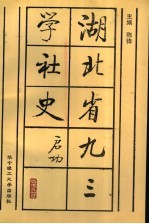 主编
湖北省九三
学社史
启功
华中理工大学出版社